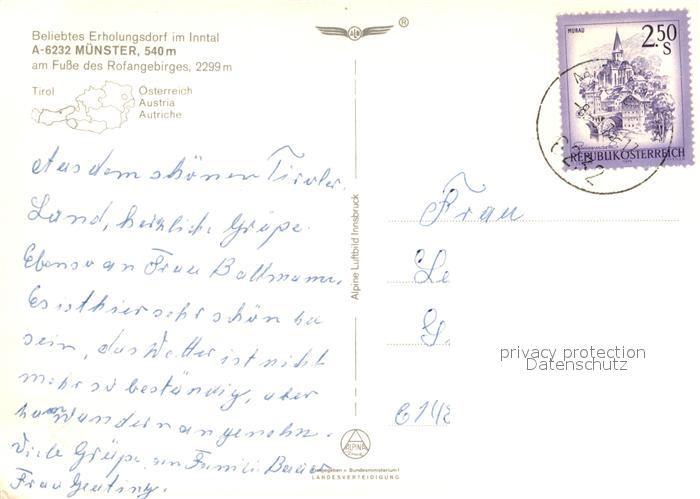 Beliebtes Erholungsdorf im Inntal
A-6232 MÜNSTER, 540 m
am Fuße des Rofangebirges, 2299 m
Tirol
Österreich
Austria
Autriche
Aus dem schönen Tiroler
Land, herzliche Grüße.
Ebenso an Frau
Es ist hier sehr schön zu
sein, das Wetter ist nicht
mehr so beständig, aber
zum Wandern angenehm.
Viele Grüße an Familie Bauer
Frau
Alpine Luftbild Innsbruck
ALPINE
Freigegeben v. Bundesministerium f.
LANDESVERTEIDIGUNG
®
MURAU
2.50
S
REPUBLIK ÖSTERREICH
6232
Frau
614
privacy protection
Datenschutz